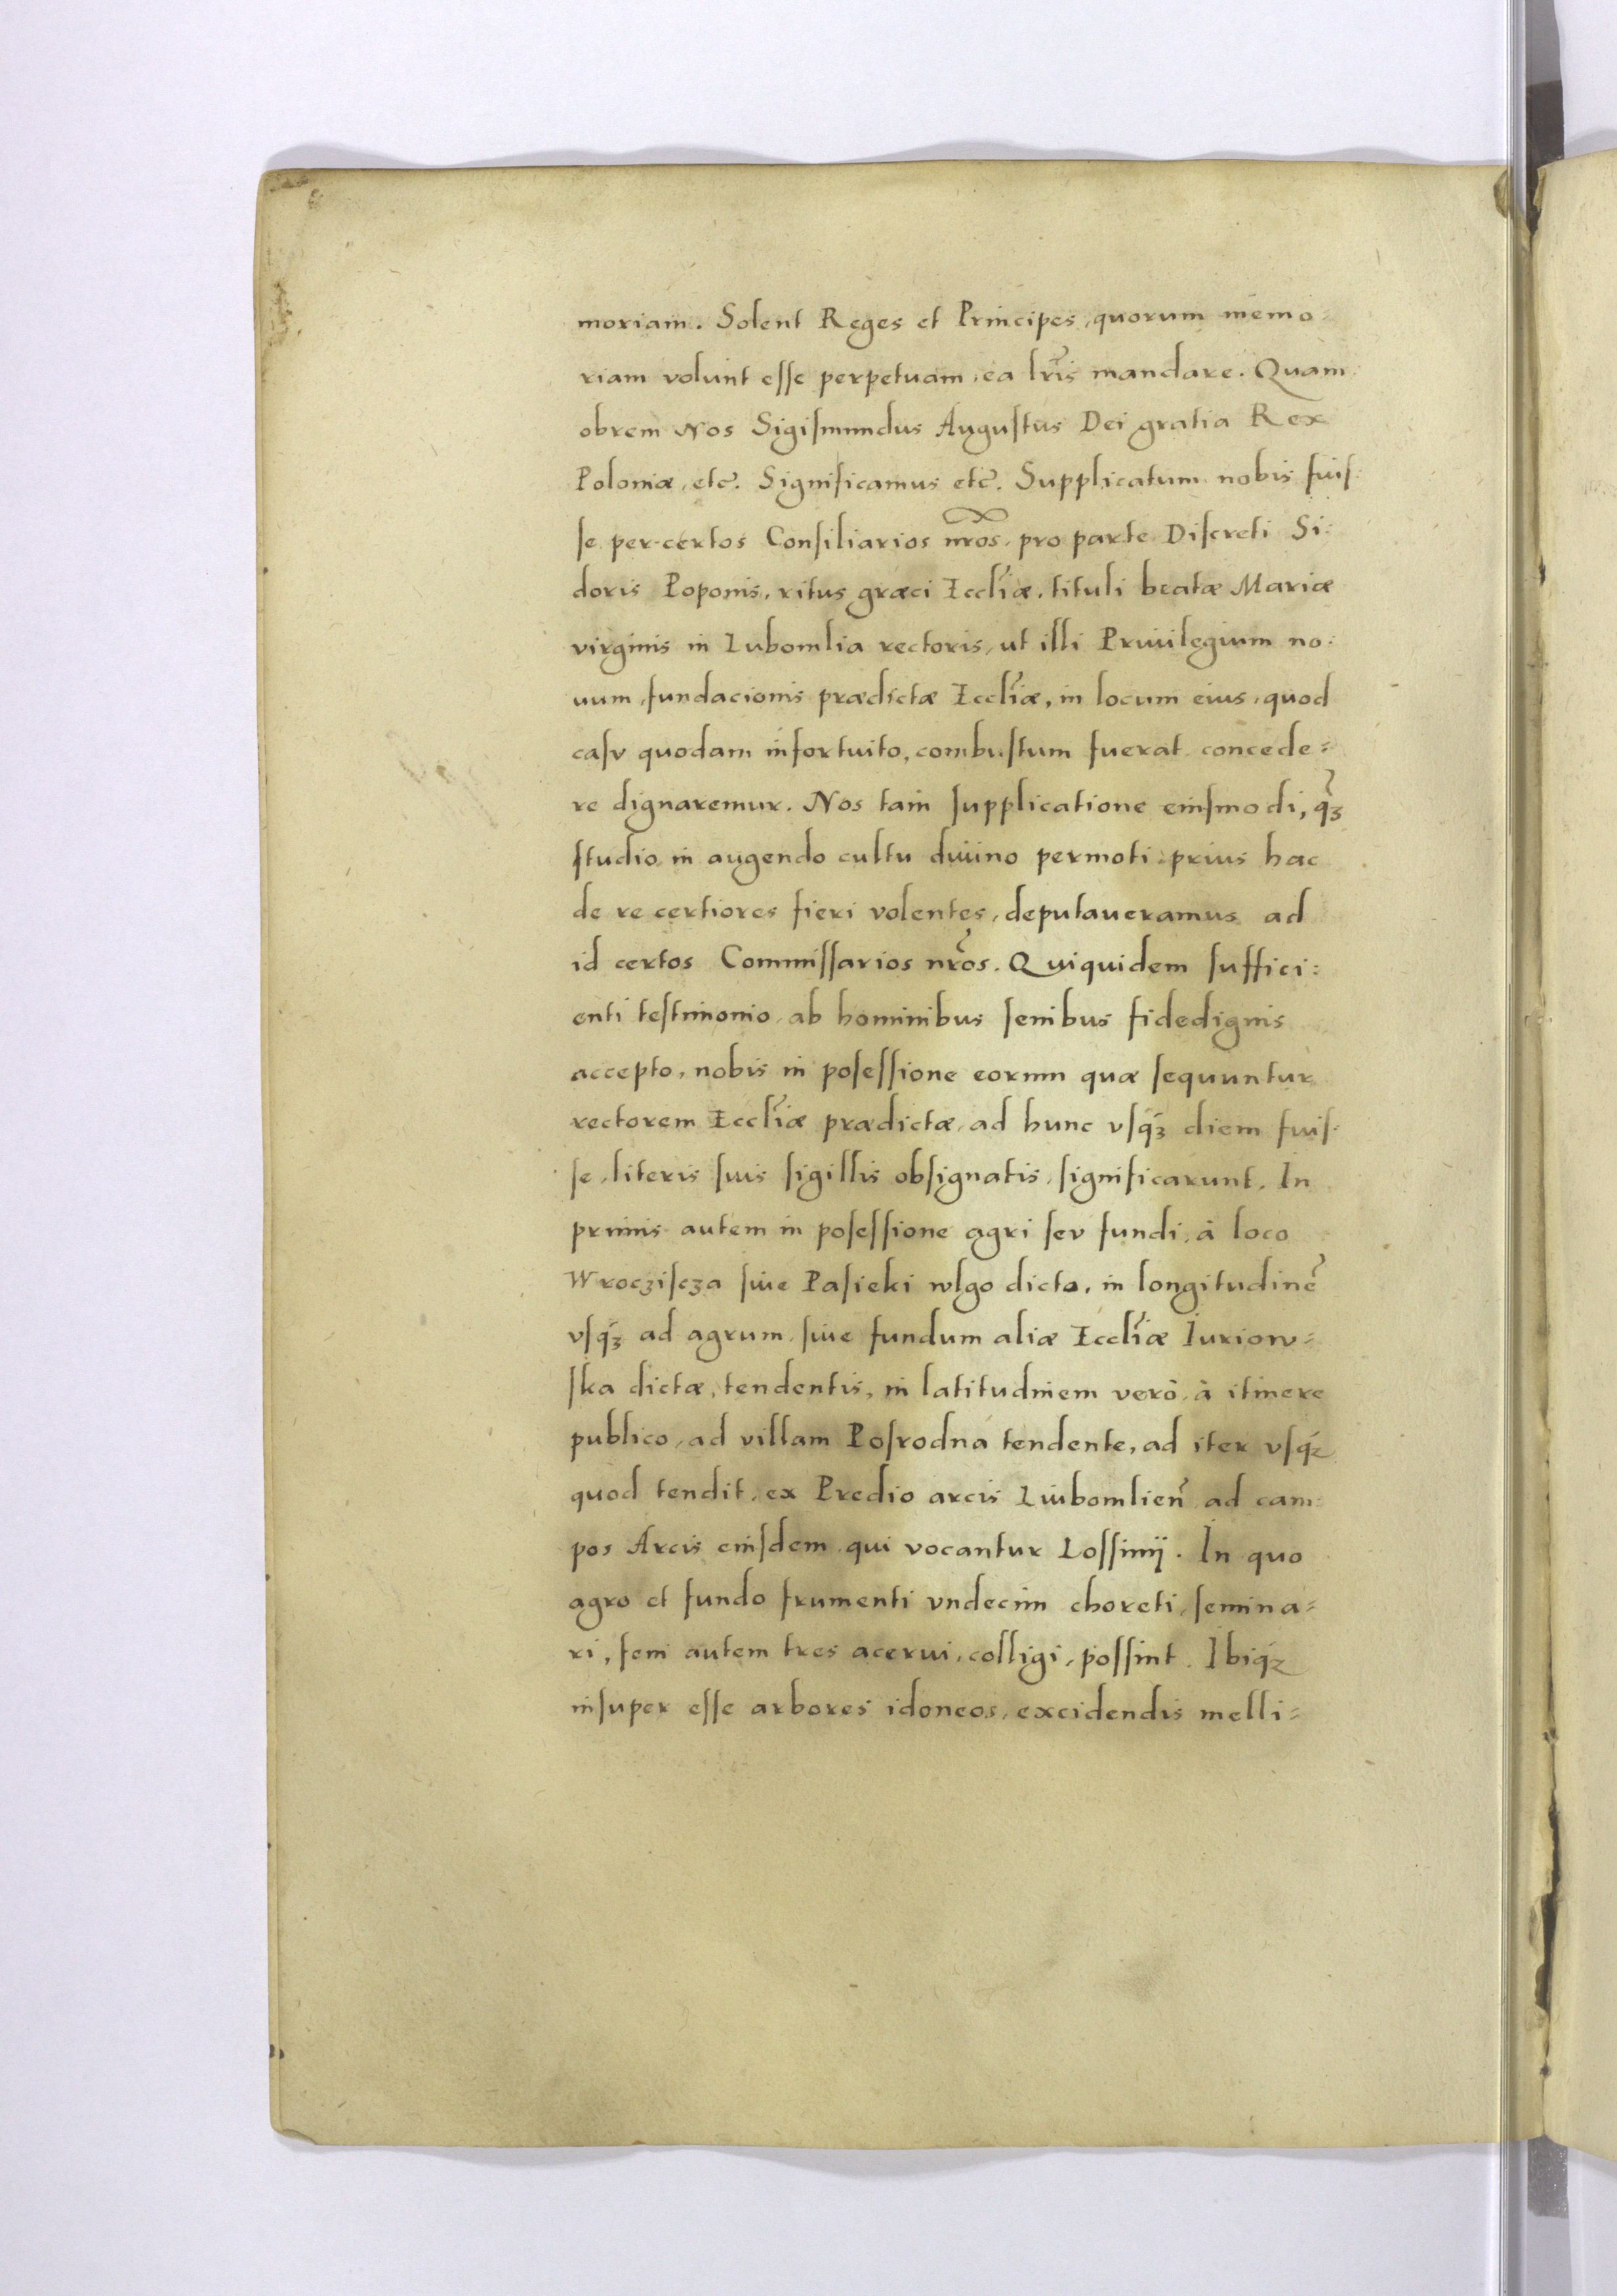 moriam. Solent Reges et Principes, quorum memo-
riam volunt esse perpetuam, ea lr̃is mandare. Quam
obrem Nos Sigiſmundus Auguſtus Dei gratia Rex
Poloniæ, etc̃. Significamus etc̃. Supplicatum nobis fuiſ-
ſe per certos Conſiliarios nr̃os, pro parte Diſcreti Si-
doris Poponis, ritus græci Eccl̃iæ, tituli beatæ Mariæ
virginis in Lubomlia rectoris, ut illi Priuilegium no-
uum, fundacionis prædictæ Eccl̃iæ, in locum eius, quod
caſv quodam infortuito, combuſtum fuerat concede=
re dignaremur. Nos tam ſupplicatione eiuſmodi, q̃ꝫ
ſtudio in augendo cultu diuino permoti: prius hac
de re certiores fieri volentes, deputaueramus ad
id certos Commiſſarios nr̃os. Quiquidem ſuffici:
enti teſtimonio, ab hominibus ſenibus fidedignis
accepto, nobis in poſeſſione eorum quæ ſequuntur
rectorem Eccl̃iæ prædictæ, ad hunc vſq́ꝫ diem fuiſ-
ſe, literis ſuis ſigillis obſignatis, ſignificarunt. In
primis autem in poſeſſione agri ſev fundi, à loco
Wrocziscza ſiue Paſieki wlgo dicto, in longitudinẽ
vſq́ꝫ ad agrum, ſiue fundum aliæ Eccl̃iæ Iuriow=
ſka dictæ, tendentis, in latitudinem verò, à itinere
publico, ad villam Poſrodna tendente, ad iter vſq́ꝫ
quod tendit, ex Predio arcis Luibomlien̄ ad cam-
pos Arcis eiuſdem, qui vocantur Loſſinij. In quo
agro et fundo frumenti vndecim choreti, ſemina=
ri, feni autem tres acerui, colligi, poſſint. Ibiq́ꝫ
inſuper eſſe arbores idoneos, excidendis melli=